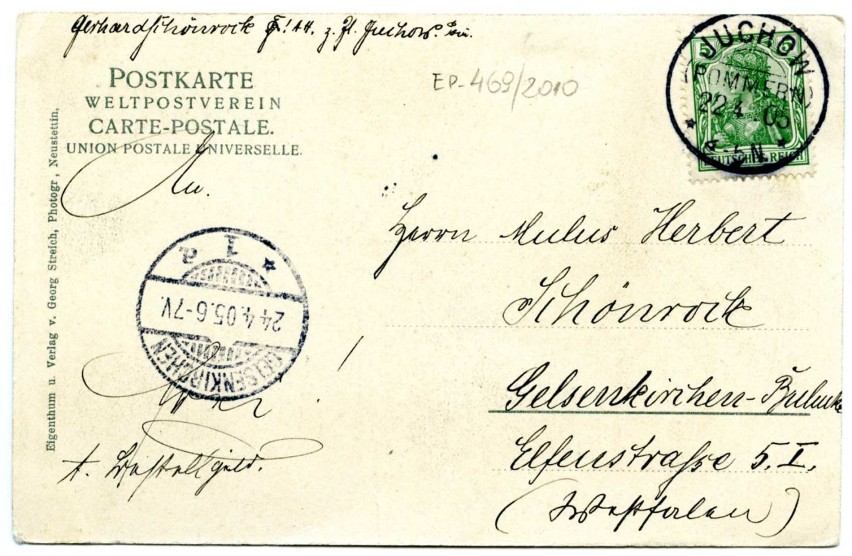 Gerhard Schönrock z. Zt. Juchow.
EP-469/2010
POSTKARTE
WELTPOSTVEREIN
CARTE-POSTALE.
UNION POSTALE UNIVERSELLE.
JUCHOW
(POMMERN)
22.4.05
4-5N.
DEUTSCHES REICH
An.
Herrn Mulus Herbert
Schönrock
Gelsenkirchen-Bulmke
Elfenstraße 5.I.
(Westfalen)
1 a
24.4.05.6-7V.
GELSENKIRCHEN
Frei!
f. Bestellgeld.
Eigenthum u. Verlag v. Georg Streich, Photogr, Neustettin.